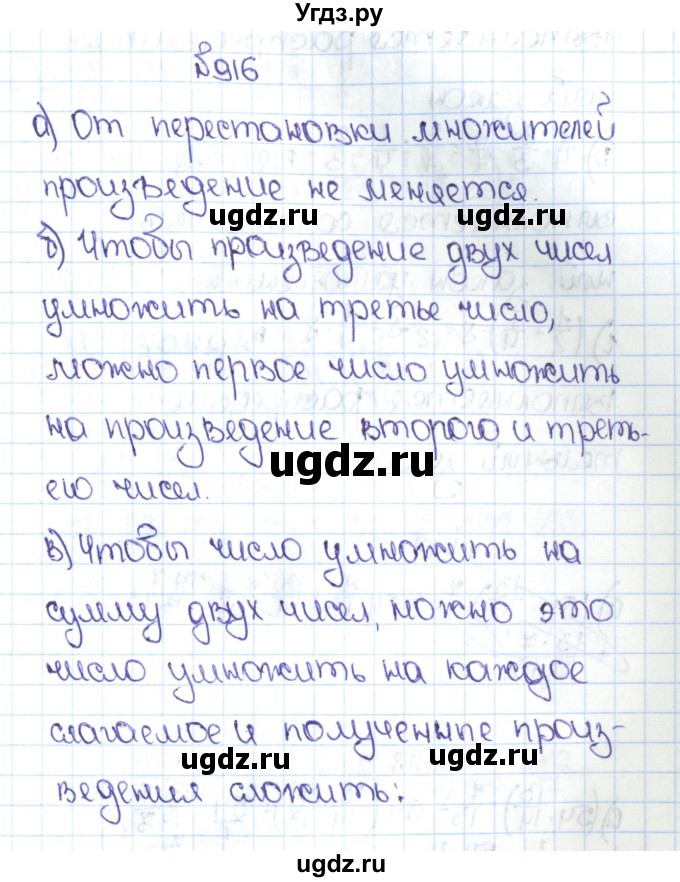 Угдз.ру
№916
а) От перестановки множителей
произведение не меняется.
ugdz.ru ugdz.ru
б) Чтобы произведение двух чисел
умножить на третье число,
можно первое число умножить
на произведение второго и треть-
ugdz.ru
его чисел.
в) Чтобы число умножить на
сумму двух чисел, можно это
число умножить на каждое
слагаемое и полученные произ-
ugdz.ru ugdz.ru
ведения сложить:
ugdz.ru
ugdz.ru